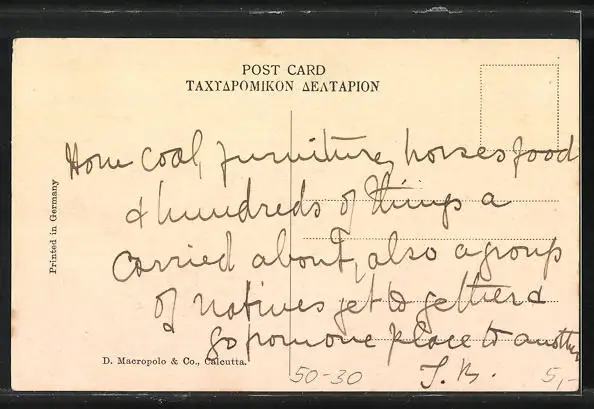 POST CARD
ΤΑΧΥΔΡΟΜΙΚΟΝ ΔΕΛΤΑΡΙΟΝ
How coal, furniture, horses food
& hundreds of things a
carried about, also a group
of natives get together &
go from one place to another
Printed in Germany
D. Macropolo & Co., Calcutta.
50-30
5,-